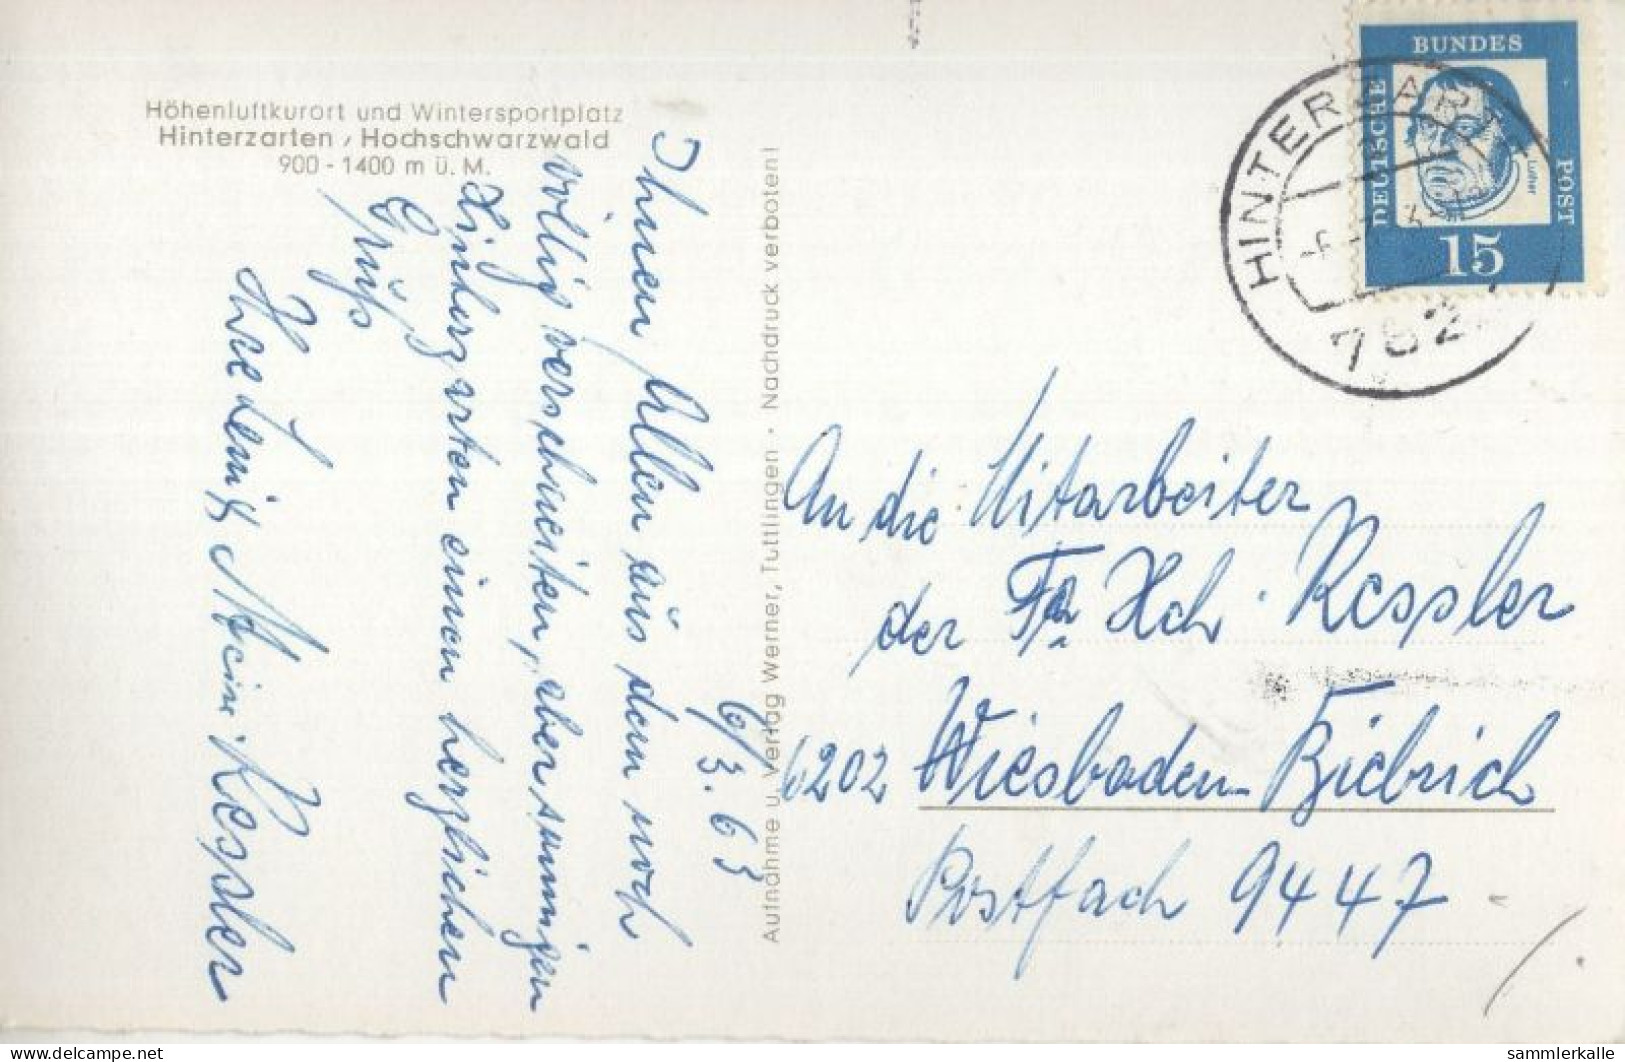 Höhenluftkurort und Wintersportplatz
Hinterzarten, Hochschwarzwald
900 - 1400 m ü. M.
6/3. 63
Ihnen Allen aus dem noch
völlig verschneiten, aber sonnigen
Hinterzarten einen herzlichen
Gruß
Ihre Heinr. Kessler
Aufnahme u. Verlag Werner, Tuttlingen · Nachdruck verboten!
BUNDES
DEUTSCHE
POST
Luther
15
HINTERZARTEN
782
An die Mitarbeiter
der Fa Hch. Kessler
6202 Wiesbaden-Biebrich
Postfach 9447
sammlerkalle
www.delcampe.net